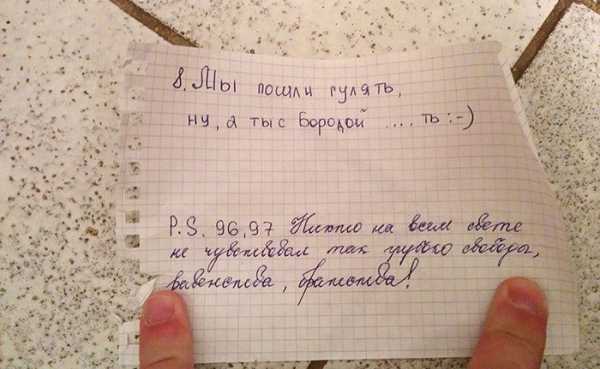 8. Мы пошли гулять,
ну, а ты с бородой ....ть :-)
P.S. 96,97 Никто на всем свете
не чувствовал так глубоко свободы,
равенства, братства!